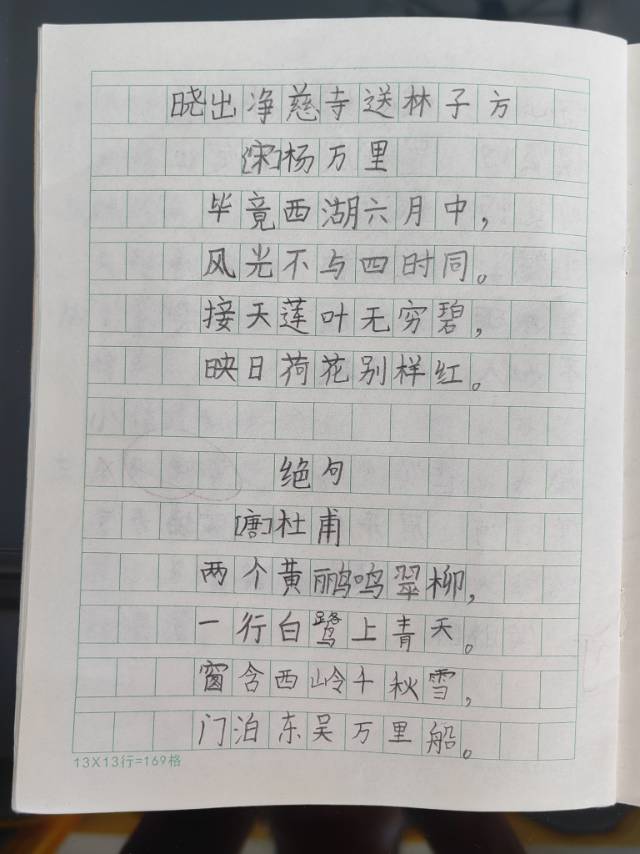 晓出净慈寺送林子方
[宋]杨万里
毕竟西湖六月中，
风光不与四时同。
接天莲叶无穷碧，
映日荷花别样红。
绝句
[唐]杜甫
两个黄鹂鸣翠柳，
一行白鹭上青天。
窗含西岭千秋雪，
门泊东吴万里船。
13X13行=169格